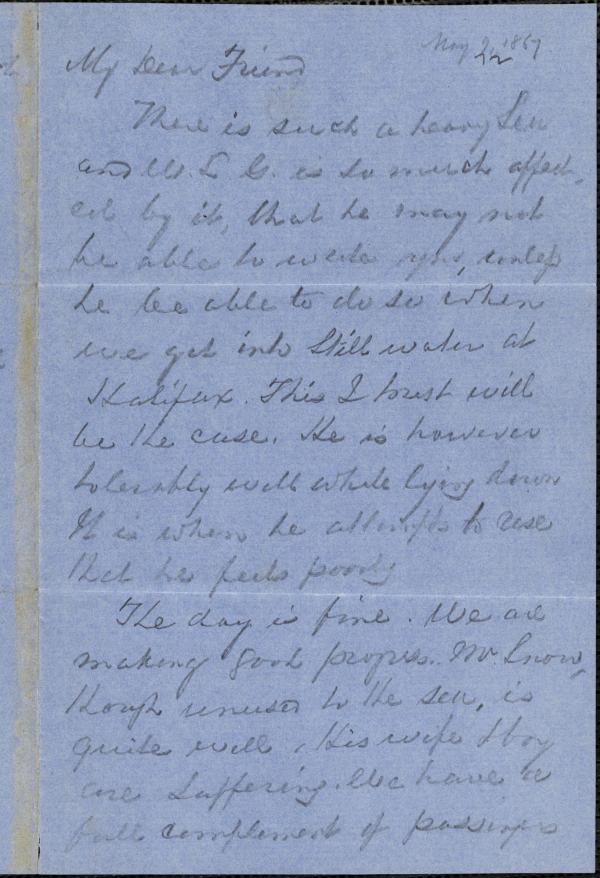 May 22, 1867
My Dear Friend
There is such a heavy Sea
and W. L. G. is so much affect-
ed by it, that he may not
be able to write you, unless
he be able to do so when
we get into Still water at
Halifax. This I trust will
be the case. He is however
tolerably well while lying down
It is when he attempts to rise
that he feels poorly
The day is fine. We are
making good progress. Mr. Snow,
though unused to the sea, is
quite well. His wife & boy
are suffering. We have a
full complement of passengers